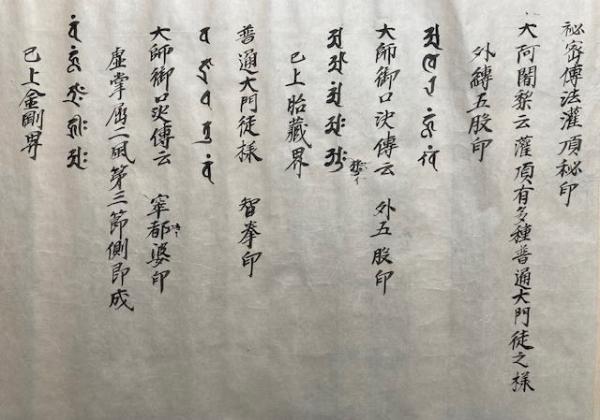 祕密傳法灌頂祕印
大阿闍梨云灌頂有多種普通大門徒之様
外縛五股印
大師御口决傳云　外五股印
已上胎藏界
普通大門徒様　智拳印
大師御口决傳云　窣都婆印
虚掌屈二風第三節側即成
已上金剛界